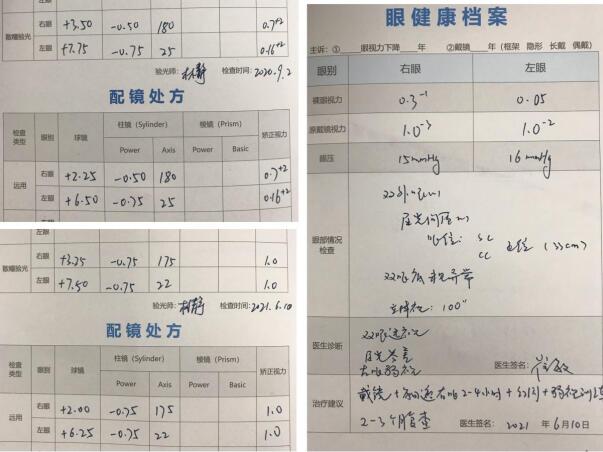 右眼 +3.50 -0.50 180 0.7⁺²
散瞳验光
左眼 +7.75 -0.75 25 0.16⁺²
验光师： 检查时间：2020.9.2
配镜处方
检查类型 眼别 球镜 柱镜(Sylinder) 棱镜(Prism) 矫正视力
Power Axis Power Basic
远用
右眼 +2.25 -0.50 180 0.7⁺²
左眼 +6.50 -0.75 25 0.16⁺²
左眼
右眼 +3.25 -0.75 175 1.0
散瞳验光
左眼 +7.50 -0.75 22 1.0
验光师： 检查时间：2021.6.10
配镜处方
检查类型 眼别 球镜 柱镜(Sylinder) 棱镜(Prism) 矫正视力
Power Axis Power Basic
远用
右眼 +2.00 -0.75 175 1.0
左眼 +6.25 -0.75 22 1.0
眼健康档案
主诉：①____眼视力下降____年 ②戴镜____年（框架 隐形 长戴 偶戴）
眼别 右眼 左眼
裸眼视力 0.3⁻¹ 0.05
原戴镜视力 1.0⁻³ 1.0⁻²
眼压 15mmHg 16mmHg
眼部情况检查
双外眼(-)
屈光间质(-)
眼位： SC
CC 正位 (33cm)
双眼底未见异常
立体视：100"
医生诊断
双眼远视
屈光参差
左眼弱视
医生签名：
治疗建议
戴镜+ 右眼2-4小时+ +弱视训练
2-3个月复查 医生签名： 2021 年 6月10日